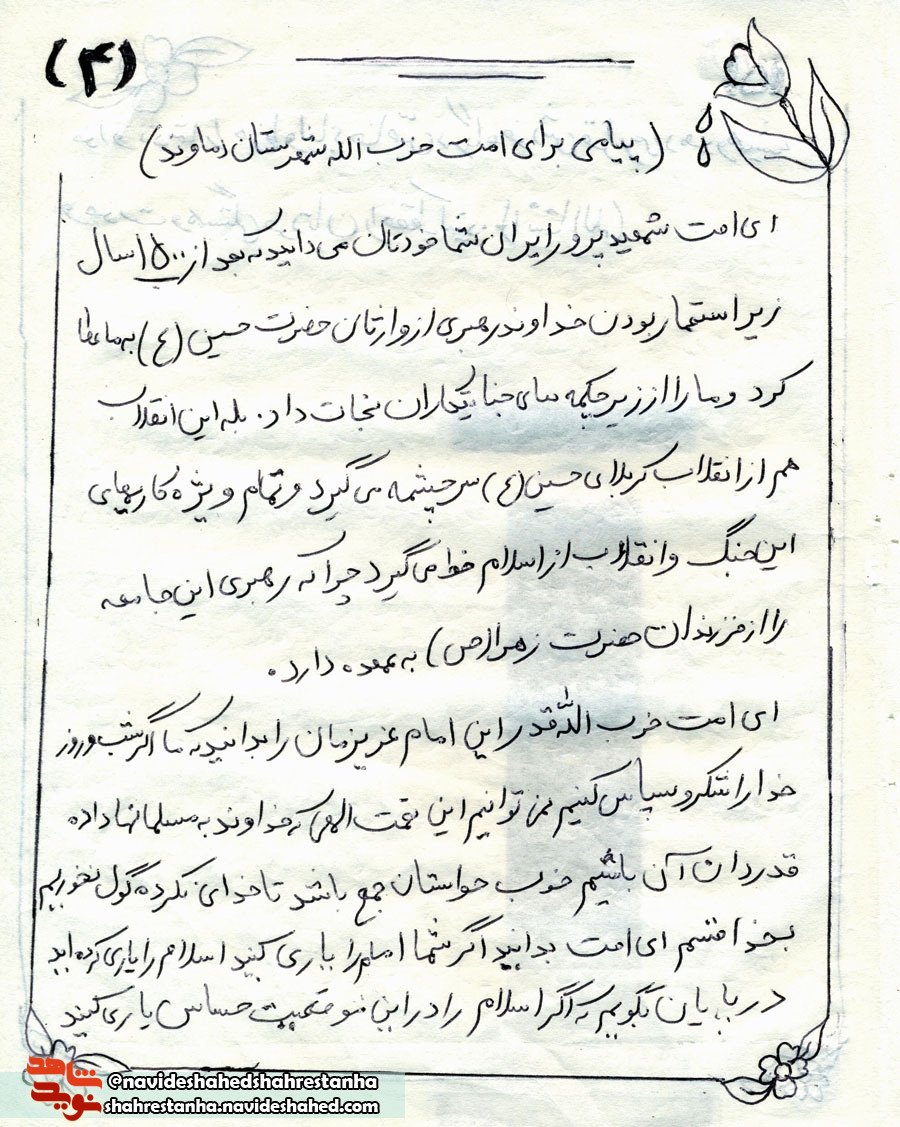 (۴)
(پیامی برای امت حزب الله شهرستان دماوند)
ای امت شهید پرور ایران شما خودتان می دانید که بعد از ۱۵۰۰ سال
زیر استعمار بودن خداوند رهبری از وارثان حضرت حسین (ع) به ما عطا
کرد و ما را از زیر چکمه های جنایتکاران نجات داد. بله این انقلاب
هم از انقلاب کربلای حسین (ع) سرچشمه می گیرد و تمام ویژه کاریهای
این جنگ و انقلاب از اسلام خط می گیرد چرا که رهبری این جامعه
را از فرزندان حضرت زهرا (ص) به عهده دارد.
ای امت حزب الله قدر این امام عزیزمان را بدانید که ما اگر شب و روز
خدا را شکر و سپاس کنیم نمی توانیم این نعمت الهی که خداوند به مسلمانها داده
قدردان آن باشیم خوب حواستان جمع باشد تا خدای نکرده گول نخوریم
بخدا قسم ای امت بدانید اگر شما امام را یاری کنید اسلام را یاری کرده اید
در پایان بگویم که اگر اسلام را در این موقعیت حساس یاری کنید
شاهد
نوید
@navideshahedshahrestanha
shahrestanha.navideshahed.com